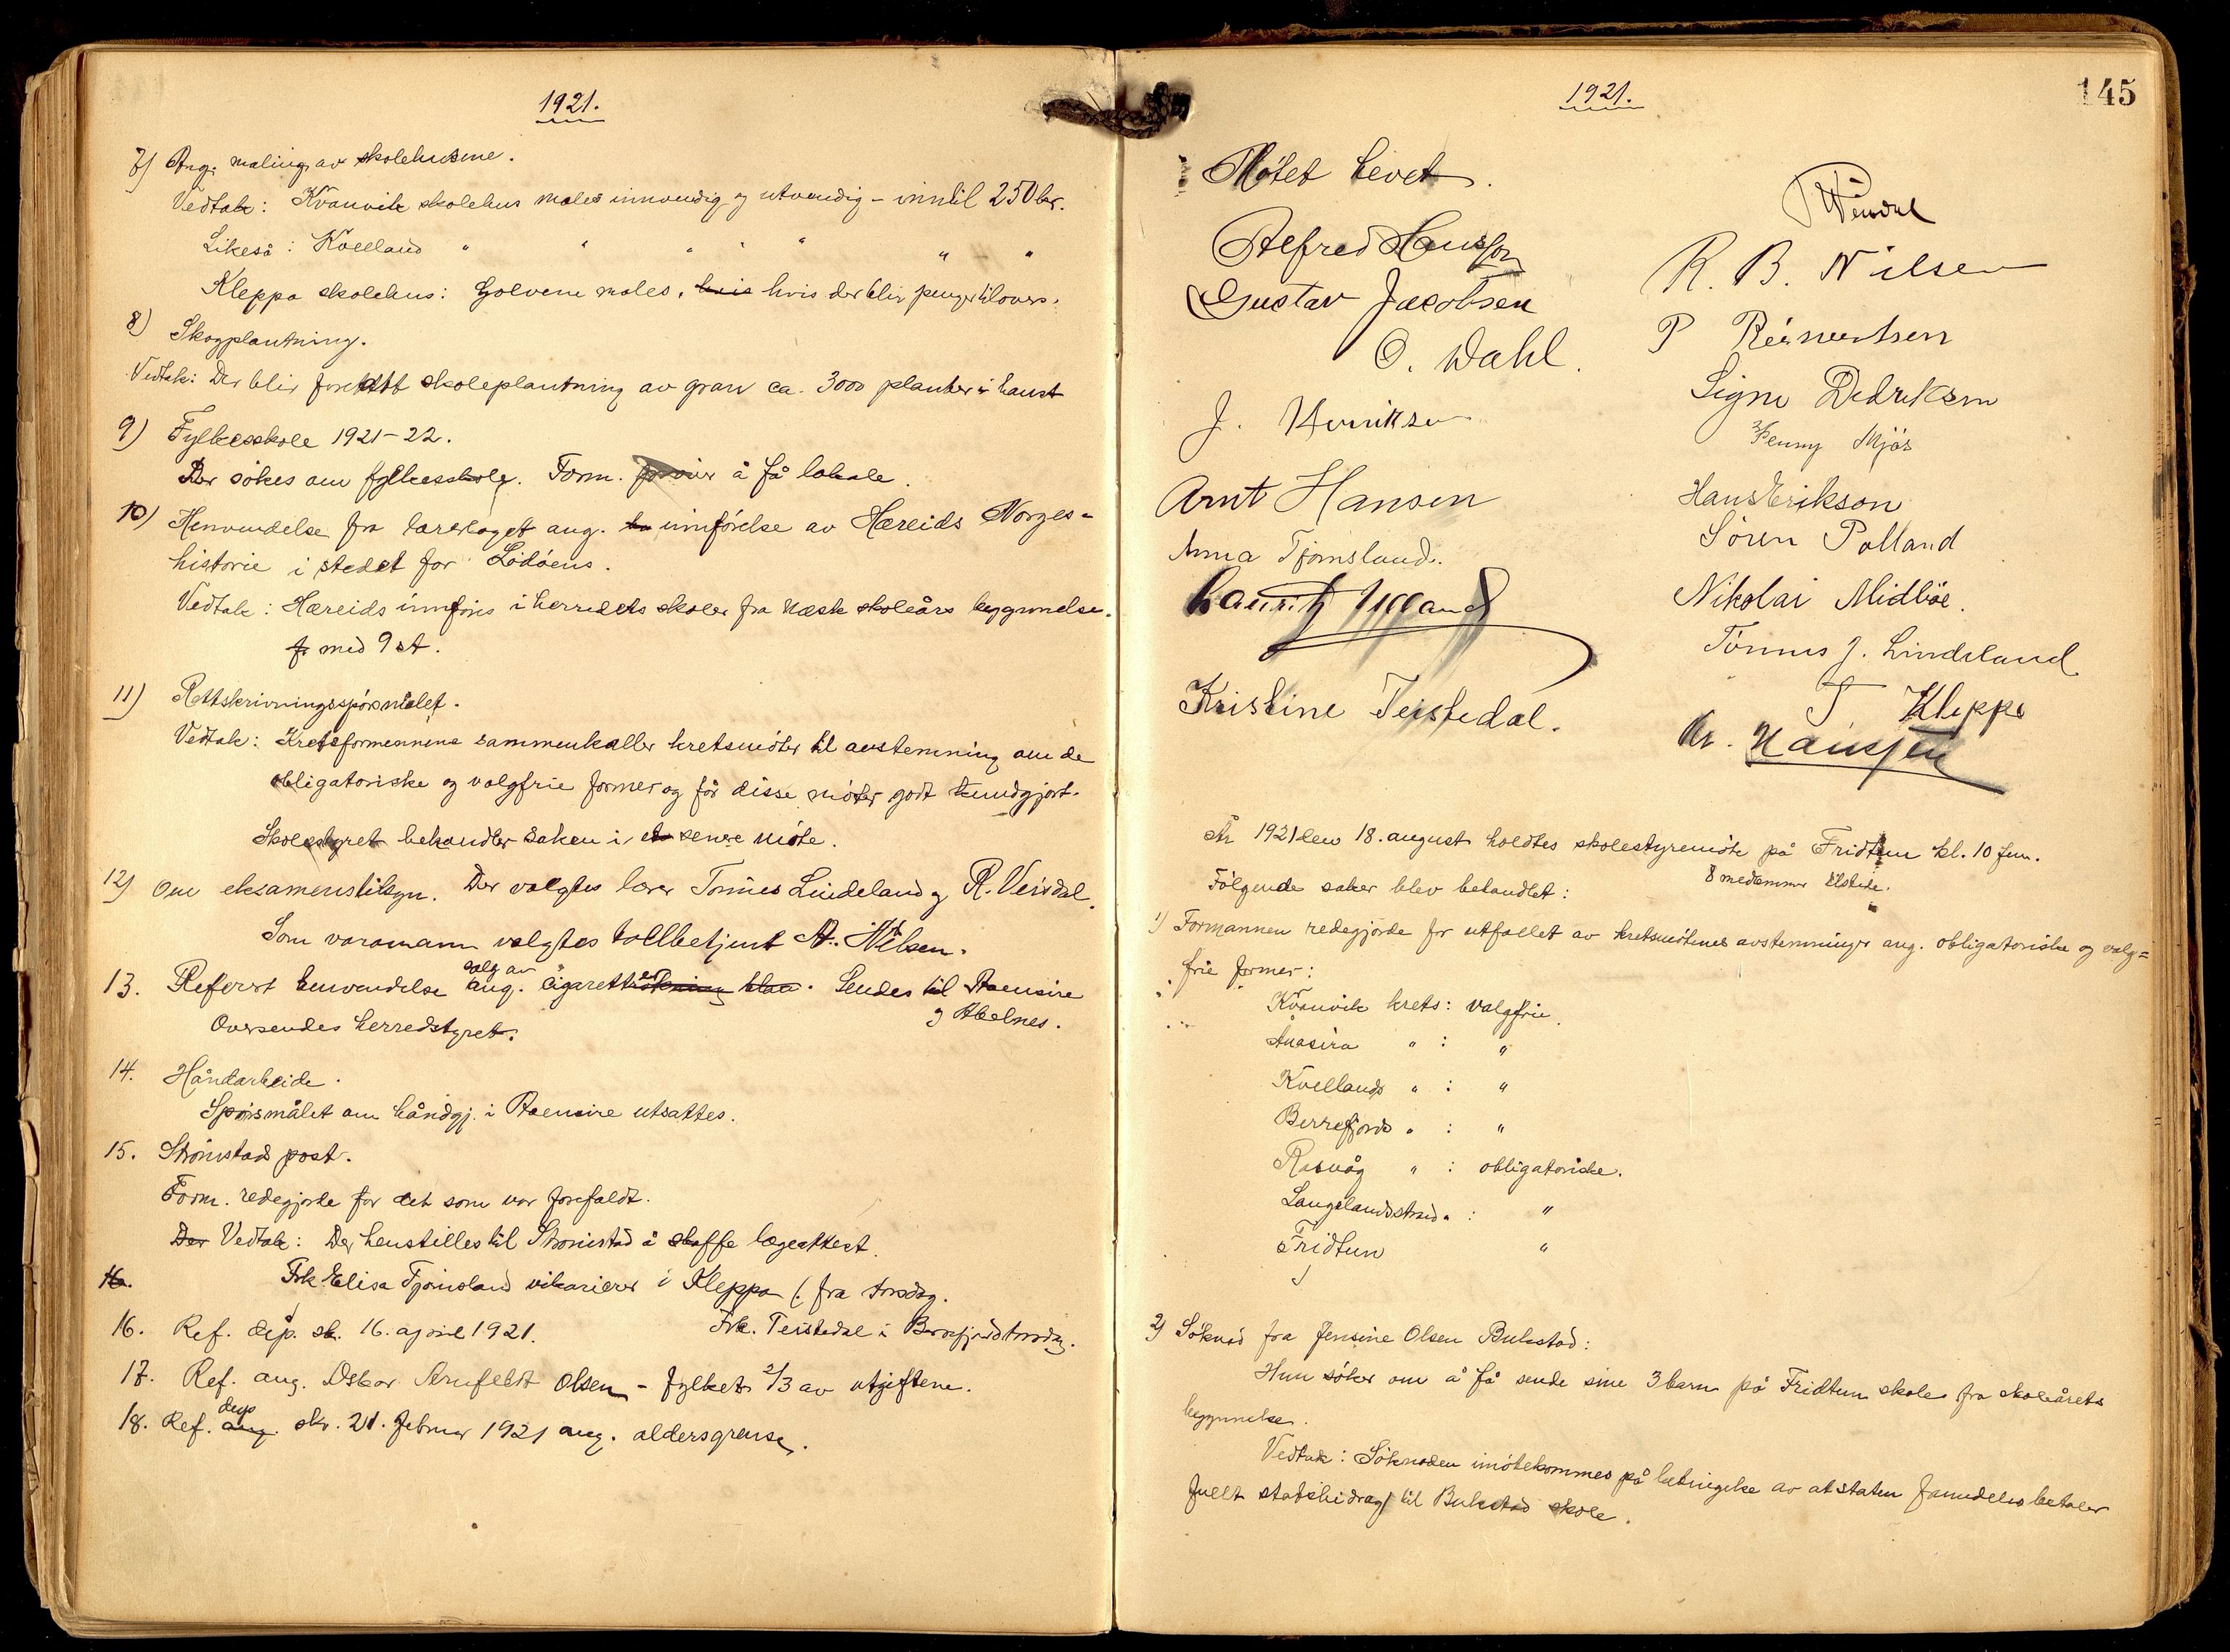 1921.
7) Ang. maling av skolehusene.
Vedtak: Kvanvik skolehus males innvendig og utvendig - inntil 250 kr.
Likeså: Kvelland " " " " " " "
Kleppa skolehus: Golvene males, hvis hvis der blir penger tilovers.
8) Skogplantning.
Vedtak: Der blir foretatt skoleplantning av gran ca. 3000 planter i haust
9) Fylkesskole 1921-22.
Der søkes om fylkesskole. Form. prøver å få lokale.
10) Henvendelse fra lærerlaget ang. innførelse av Hæreids Norges=
historie i stedet for Lødøens.
Vedtak: Hæreids innføris i herredets skoler fra næste skoleårs begynnelse.
fr med 9 st.
11) Rettskrivningsspørsmålet.
Vedtak: Kretsformennene sammenkaller kretsmøter til avstemning om de
obligatoriske og valgfrie former og får disse møter godt kundgjort.
Skolestyret behandler saken i et senere møte.
12) Om eksamenstilsyn. Der valgtes lærer Tønnes Lindeland og R. Veisdal.
Som varamann valgtes tollbetjent A. Nilsen.
13. Referert henvendelse ang. salg av cigaretter. Sendes til Aaensire
og Abelnes.
Oversendes herredstyret.
14. Håndarbeide.
Spørsmålet om håndgj. i Aaensire utsattes.
15. Strømstad post.
Form. redegjorde for det som var forefaldt.
Der Vedtak: Der henstilles til Strømstad å skaffe lægeattest.
16. Frk Elisa Tjømsland vikarierer i Kleppa (. fra torsdag.
16. Ref. dep. sk. 16. april 1921. Frk. Teistedal i Berrefjord torsdag.
17. Ref. ang. Oskar Arnfeldt Olsen - fylket 2/3 av utgiftene.
18. Ref. ang. dep skr. 21. februar 1921 ang. aldersgrense.
1921.
145
Møtet hevet.
R Veisdal
Alfred Hansson
R. B. Nilsen
Gustav Jacobsen
P Reinertsen
O. Dahl.
Signe Dedriksen
J. Henriksen
Jenny Mjös
Arnt Hansen
Hans Erikson
Anna Tjømsland.
Søren Polland
Lauritz Uggland
Nikolai Midbøe.
Tønnes J. Lindeland
Kristine Teistedal.
T Kleppe
Kr. Hanssen
År 1921 den 18. august holdtes skolestyremøte på Fridtun kl. 10 fm.
8 medlemmer tilstede.
Følgende saker blev behandlet:
1) Formannen redegjorde for utfallet av kretsmøtenes avstemninger ang. obligatoriske og valg=
frie former:
Kvanvik krets: valgfrie.
Ånasira " : "
Kvellands " : "
Berrefjords " : "
Rasvåg " : obligatoriske.
Langelandsstrand " : "
Fridtun "
2) Søknad fra Jensine Olsen Bukstad:
Hun søker om å få sende sine 3 barn på Fridtun skole fra skoleårets
begynnelse.
Vedtak: Søknaden imøtekommes på betingelse av at staten fremdeles betaler
fullt statsbidrag til Bukstad skole.